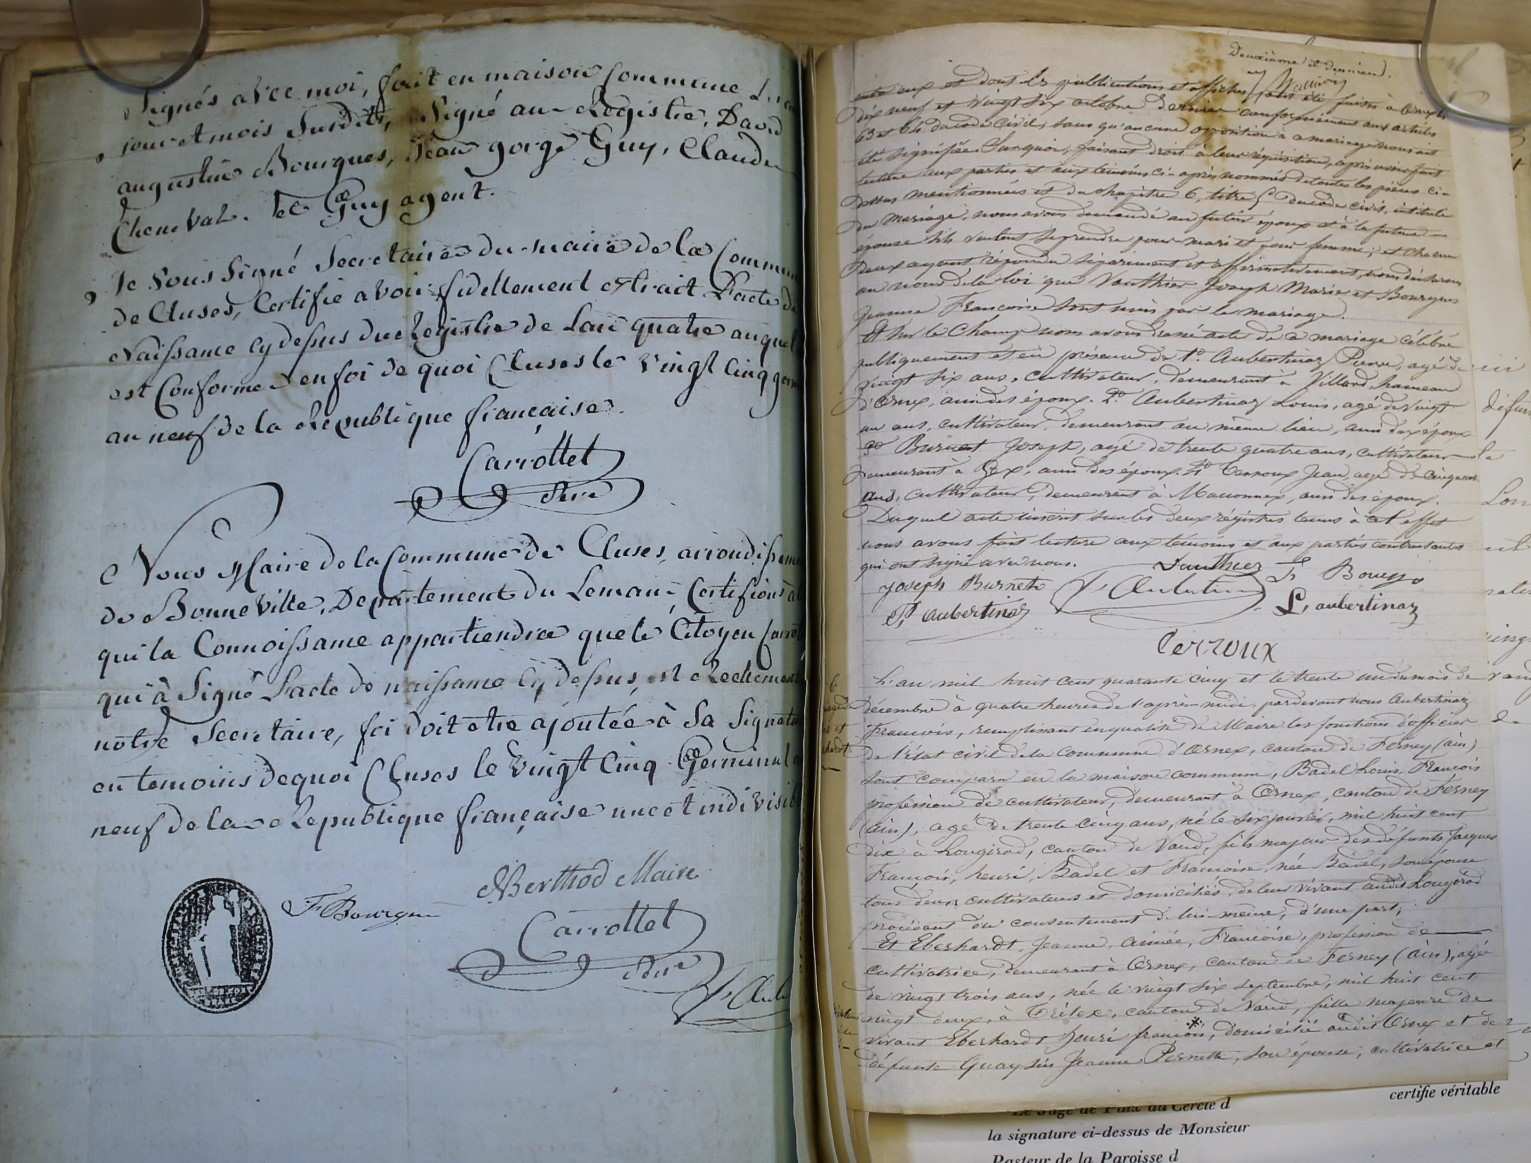 Signés avec moi, fait en maison Commune Les
jour et mois Susdits, Signé au Registre, David
augustin Bourques, Jean gorge Guy, Claude
Cheneval. et Guy agent.
Je Sous Signé Secretaire du maire de la Commun
de Cluses, Certifie avoir fidellement extrait L'acte de
Naissance cy dessus du Registre de L'an quatre auquel
est Conforme en foi de quoi Cluses le vingt Cinq ger
an neuf de la Republique française.
Carrottet
Nous Maire de la Commune de Cluses, arrondissem
de Bonneville, Departement du Leman, Certifions à
qui la Connoissance appartiendra que le Citoyen Carrot
qui à Signé L'acte de naissance cy dessus, est reellement
nôtre Secretaire, foi doit etre ajoutée à Sa Signatu
en temoins de quoi Cluses le vingt Cinq Germinal
neuf de la Republique française une et indivisib
Berthod Maire
F Bourgu
Carrottet
Deuxième & dernier
entre eux et dont les publications et affiches ont été faites à Ornex
dix neuf et vingt six octobre dernier conformément aux articles
63 et 64 du code Civil, sans qu'aucune opposition à ce mariage nous ait
été signifiée. Surquoi, faisant droit à leur réquisition, après avoir fait
lecture aux parties et aux témoins ci-après nommés de toutes les pièces ci-
dessus mentionnées et du chapitre 6, titre 5 du code civil, intitulé
du Mariage, nous avons demandé au futur époux et à la future
épouse s'ils veulent se prendre pour mari et pour femme; et chacun
d'eux ayant répondu séparément et affirmativement, nous déclarons
au nom de la loi que Vauthier Joseph Marie et Bourgus
Jeanne Françoise sont unis par le mariage.
Et sur le Champ nous avons dressé acte de ce mariage célébré
publiquement et en présence de 1° Aubertinaz Pierre, agé de
vingt six ans, cultivateur, demeurant à Villard, hameau
d'Ornex, ami des époux. 2° Aubertinaz Louis, agé de vingt
un ans, cultivateur, demeurant au même lieu, ami des époux
3° Burnet Joseph, agé de trente quatre ans, cultivateur
demeurant à Gex, ami des époux. 4° Terroux Jean, agé de cinquante
ans, cultivateur, demeurant à Maconnex, ami des époux.
Duquel acte inscrit sur les deux régistres tenus à cet effet
nous avons fait lecture aux témoins et aux parties contractantes
qui ont signé avec nous.
Joseph Burnet
P. aubertinaz
L. aubertinaz
Terroux
L'an mil huit cent quarante cinq et le trente un du mois de
décembre à quatre heures de l'après-midi, pardevant nous Aubertinaz
François, remplissant en qualité de Maire les fonctions d'officier
de l'état civil de la commune d'Ornex, canton de Ferney (ain)
sont comparu en la maison commune, Badel Louis François
profession de cultivateur, demeurant à Ornex, canton de Ferney
(ain), agé de trente cinq ans, né le six janvier, mil huit cent
dix à Longirod, canton de Vaud, fils majeur des défunts Jacques
François, henri, Badel et Françoise, née Badel, son épouse
tous deux cultivateurs et domiciliés de leur vivant audit Longirod
procédant du consentement de lui-même, d'une part,
Et Eberhardt, Jeanne, Aimée, Françoise, profession de
cultivatrice, demeurant à Ornex, canton de Ferney (ain), agé
de vingt trois ans, née le vingt six septembre, mil huit cent
vingt deux, à Trélex, canton de Vaud, fille majeure de
vivant Eberhardt henri françois, domicilié audit Ornex et de
défunte Jeanne Pernette, son épouse; cultivatrice et
certifie véritable
Le Juge de Paix du Cercle d
la signature ci-dessus de Monsieur
Pasteur de la Paroisse d